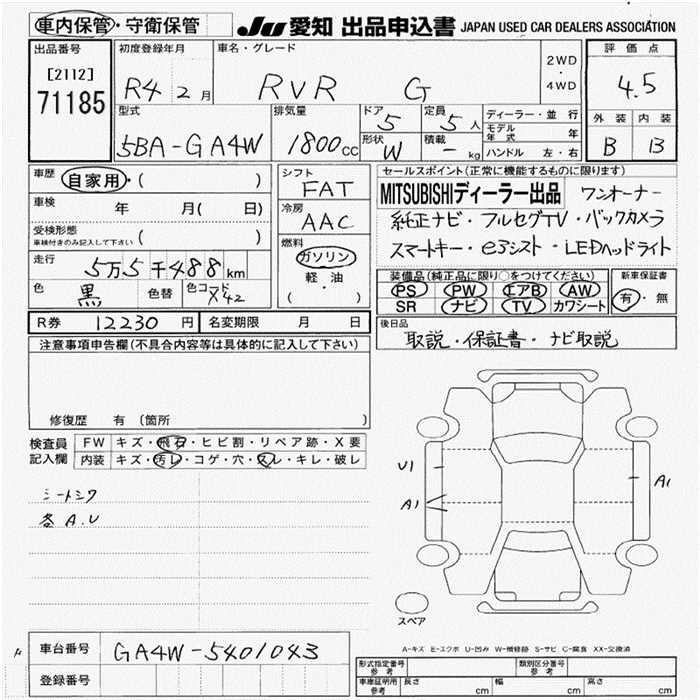 車内保管・守衛保管 JU 愛知 出品申込書 JAPAN USED CAR DEALERS ASSOCIATION
出品番号 初度登録年月 車名・グレード 評価点
[2112] R4 2月 RVR G 2WD・4WD 4.5
71185
型式 排気量 ドア 定員 ディーラー・並行 外装 内装
5BA-GA4W 1800cc 5 5人 モデル年式 年
形状 W 積載 - kg ハンドル 左・右 B B
車歴 自家用・( ) シフト FAT セールスポイント(正常に機能するものに限ります)
車検 年 月( 日) 冷房 AAC MITSUBISHIディーラー出品 ワンオーナー
受検形態 ( ) 純正ナビ・フルセグTV・バックカメラ
車検付きのみ記入して下さい 燃料 スマートキー・e3シスト・LEDヘッドライト
走行 5万5千488km ガソリン
軽・油
( )
装備品(純正品に限り○をつけてください) 新車保証書
色 黒 色替 色コード X42 PS PW エアB AW 有・無
SR ナビ TV カワシート
R券 12230円 名変期限 月 日 後日品
取説・保証書・ナビ取説
注意事項申告欄(不具合内容等は具体的に記入して下さい)
修復歴 有 (箇所 )
検査員記入欄 FW キズ・飛石・ヒビ割・リペア跡・X要
内装 キズ・汚レ・コゲ・穴・スレ・キレ・破レ
シートシワ
各A.U
U1
A1
A1
スペア
A-キズ E-エクボ U-凹み W-補修跡 S-サビ C-腐食 XX-交換済
車台番号 GA4W-5401043
登録番号
形式指定番号 参考 類別区分番号 参考
車庫証明用 参考 長さ cm 幅 cm 高さ cm